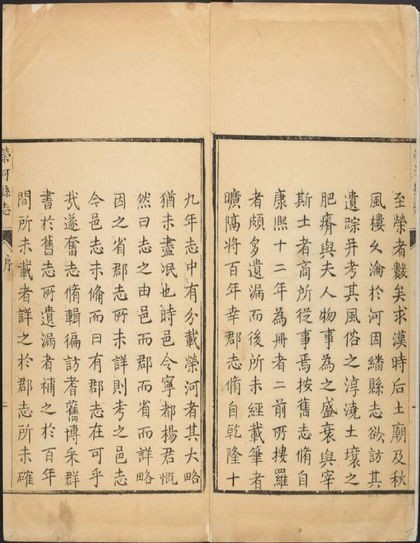 至榮者數矣求漢時后土廟及秋
風樓久淪於河因繙縣志欲訪其
遺踪并考其風俗之淳澆土壤之
肥瘠與夫人物事為之盛衰與宰
斯土者商所從事焉按舊志脩自
康熙十二年為冊者二前所摟羅
者頗多遺漏而後所未經載筆者
曠隔將百年幸郡志脩自乾隆十
九年志中有分載榮河者其大略
猶未盡泯也時邑令寧都楊君慨
然曰志之由邑而郡而省而詳略
因之省郡志所未詳則考之邑志
今邑志未脩而曰有郡志在可乎
哉遂奮志脩輯徧訪耆舊博采群
書於舊志所遺漏者補之於百年
間所未載者詳之於郡志所未確
榮河縣志
序
二